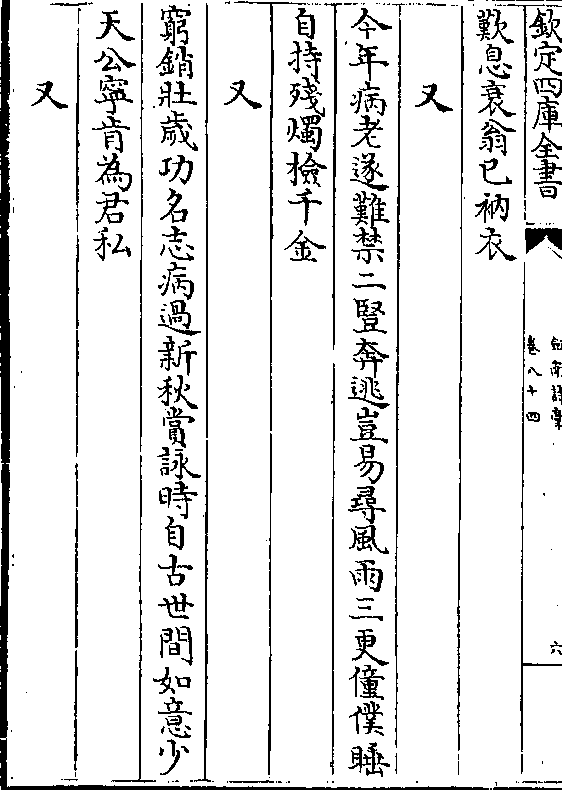 欽定四庫全書
劍南詩藳
卷八十四
六
歎息衰翁已衲衣
又
今年病老遂難禁二豎奔逃豈易尋風雨三更僮僕睡
自持殘燭檢千金
又
窮銷壯歳功名志病過新秋賞詠時自古世間如意少
天公寧肯為君私
又